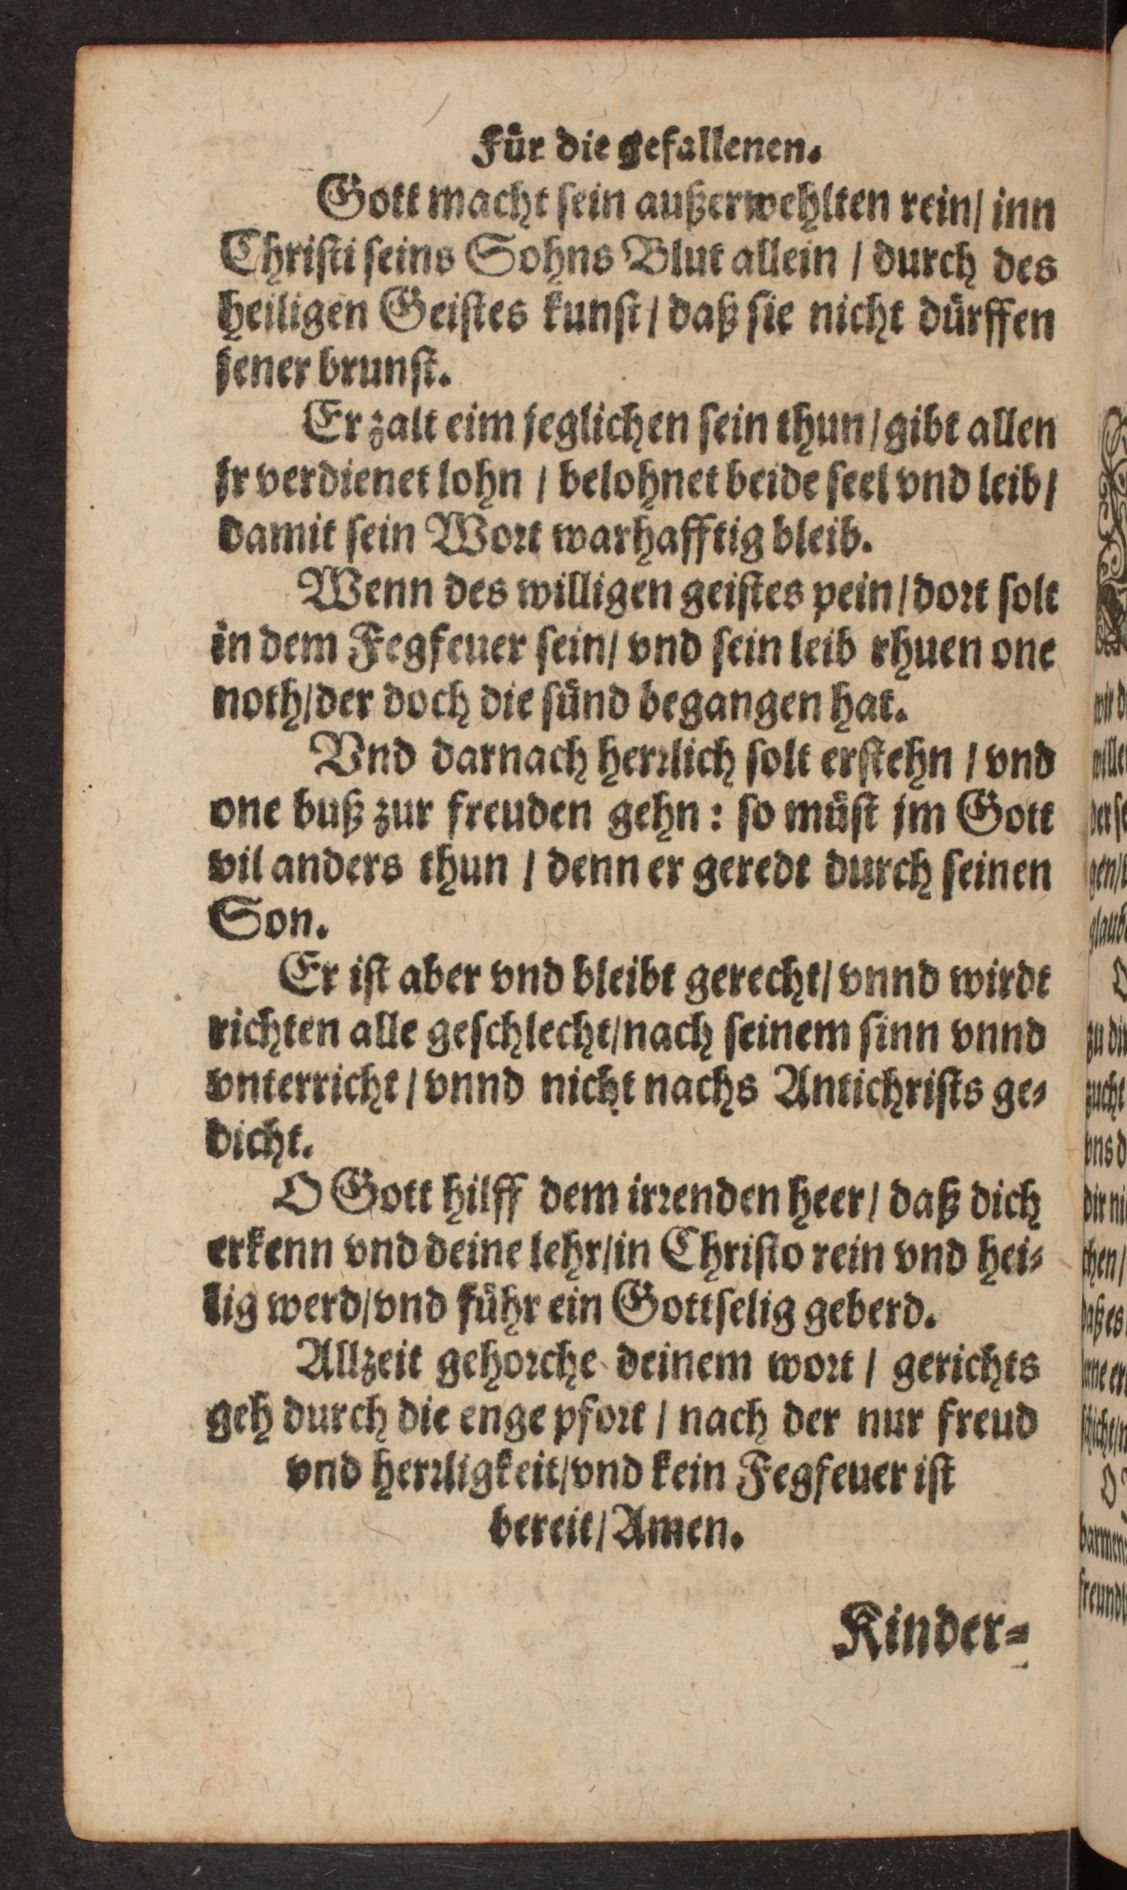 Für die gefallenen.
Gott macht sein außerwehlten rein/ inn
Christi seins Sohns Blut allein / durch des
heiligen Geistes kunst/ daß sie nicht dürffen
jener brunst.
Er zalt eim jeglichen sein thun/ gibt allen
jr verdienet lohn / belohnet beide seel vnd leib/
damit sein Wort warhafftig bleib.
Wenn des willigen geistes pein/ dort solt
in dem Fegfeuer sein/ vnd sein leib rhuen one
noth/ der doch die sünd begangen hat.
Vnd darnach herrlich solt erstehn / vnd
one buß zur freuden gehn: so müst jm Gott
vil anders thun / denn er geredt durch seinen
Son.
Er ist aber vnd bleibt gerecht/ vnnd wirdt
richten alle geschlecht/ nach seinem sinn vnnd
vnterricht/ vnnd nicht nachs Antichrists ge-
dicht.
O Gott hilff dem irrenden heer/ daß dich
erkenn vnd deine lehr/ in Christo rein vnd hei-
lig werd/ vnd führ ein Gottselig geberd.
Allzeit gehorche deinem wort / gerichts
geh durch die enge pfort / nach der nur freud
vnd herrligkeit/ vnd kein Fegfeuer ist
bereit/ Amen.
Kinder-